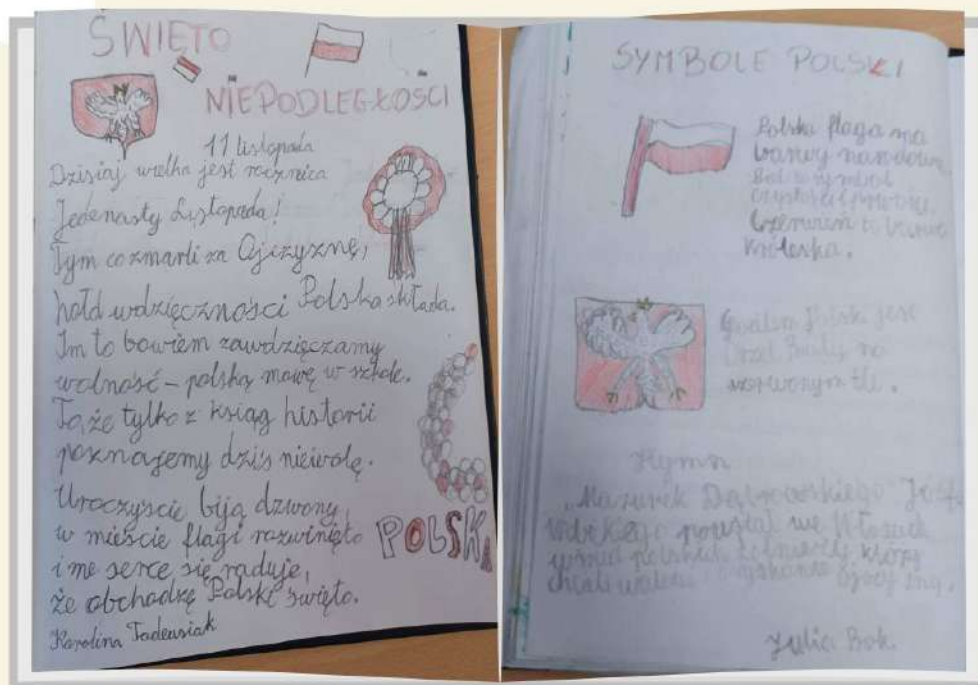 ŚWIĘTO
NIEPODLEGŁOŚCI
11 listopada
Dzisiaj wielka jest rocznica
Jedenasty Listopada!
Tym co zmarli za Ojczyznę,
hołd wdzięczności Polska składa.
Im to bowiem zawdzięczamy
wolność - polską mowę w szkole.
To, że tylko z ksiąg historii
poznajemy dziś niewolę.
Uroczyście biją dzwony,
w mieście flagi rozwinięto
i me serce się raduje,
że obchodzę Polski święto.
Karolina Tadeusiak
POLSKA
SYMBOLE POLSKI
Polska flaga ma
barwy narodowe.
Biel to symbol
czystości i
Czerwień to barwa
królewska.
Godłem Polski jest
Orzeł Biały na
czerwonym tle.
Hymn
"Mazurek Dąbrowskiego" Józefa
powstał we Włoszech
wśród polskich żołnierzy który
Julia Bok